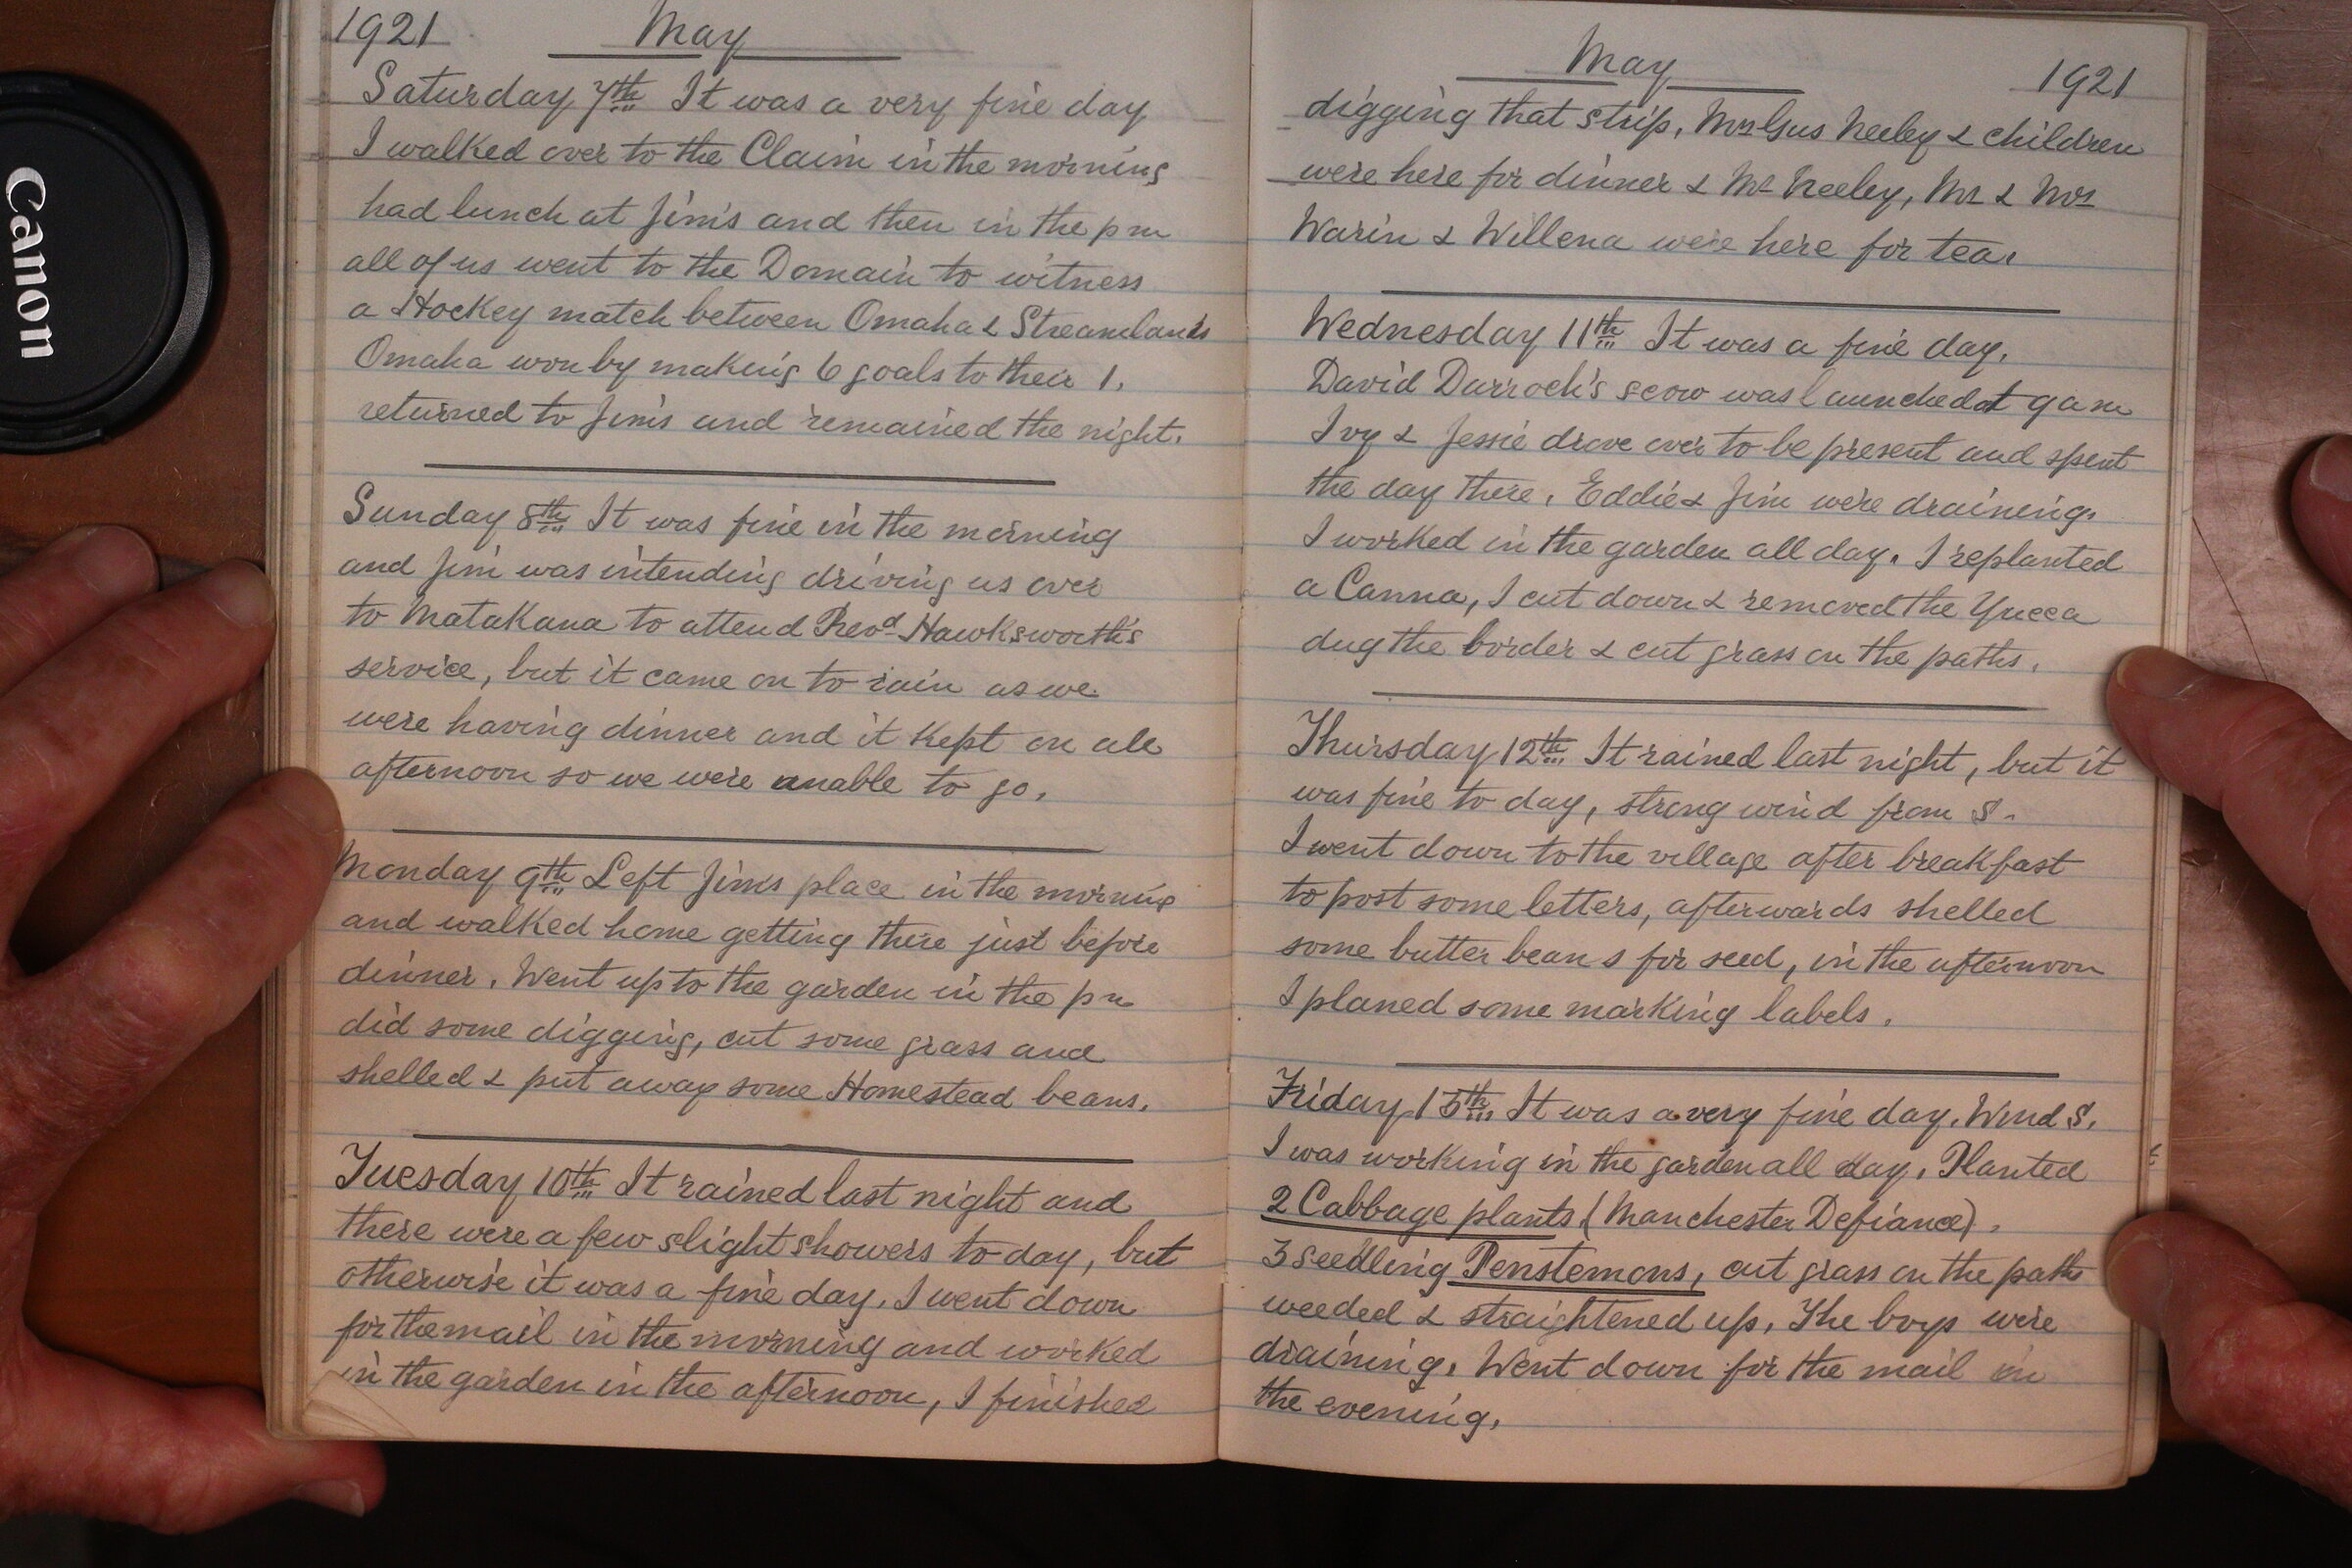 Canon
1921 May
Saturday 7th It was a very fine day
I walked over to the Claim in the morning
had lunch at Jim's and then in the pm
all of us went to the Domain to witness
a Hockey match between Omaha & Streamlands
Omaha won by making 6 goals to their 1.
returned to Jim's and remained the night.
Sunday 8th It was fine in the morning
and Jim was intending driving us over
to Matakana to attend Revd Hawksworth's
service, but it came on to rain as we
were having dinner and it kept on all
afternoon so we were unable to go.
Monday 9th Left Jim's place in the morning
and walked home getting there just before
dinner. Went up to the garden in the pm
did some digging, cut some grass and
shelled & put away some Homestead beans.
Tuesday 10th It rained last night and
there were a few slight showers to day, but
otherwise it was a fine day. I went down
for the mail in the morning and worked
in the garden in the afternoon, I finished
May 1921
digging that strip. Mrs Gus Neeley & children
were here for dinner & Mr Neeley, Mr & Mrs
Warin & Willena were here for tea.
Wednesday 11th It was a fine day.
David Darroch's scow was launched at 9 am
Ivy & Jessie drove over to be present and spent
the day there. Eddie & Jim were draining.
I worked in the garden all day. I replanted
a Canna, I cut down & removed the Yucca
dug the border & cut grass on the paths.
Thursday 12th It rained last night, but it
was fine to day, strong wind from S.
I went down to the village after breakfast
to post some letters, afterwards shelled
some butter beans for seed, in the afternoon
I planed some marking labels.
Friday 13th It was a very fine day. Wind S.
I was working in the garden all day. Planted
2 Cabbage plants (Manchester Defiance).
3 seedling Penstemons, cut grass on the paths
weeded & straightened up. The boys were
draining. Went down for the mail in
the evening.